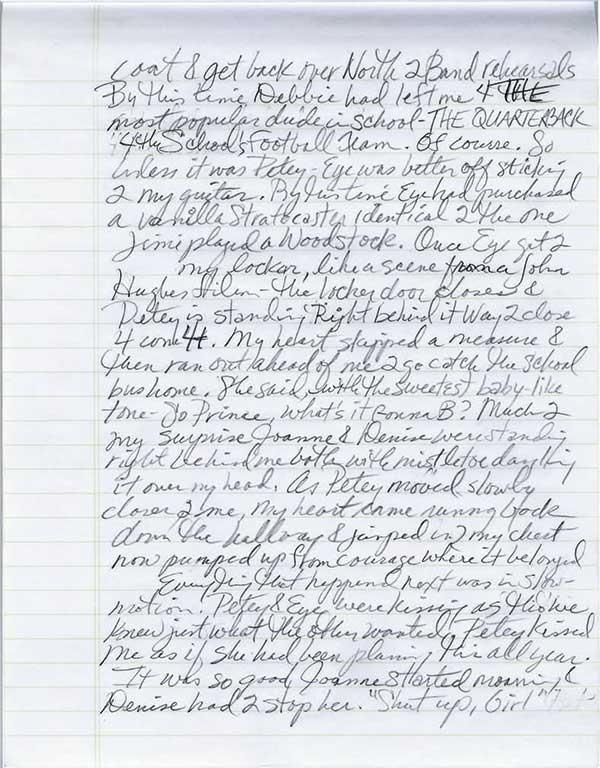 coat & get back over North 2 Band rehearsals
By this time Debbie had left me 4 THE
most popular dude in school - THE QUARTERBACK
4 the School's Football Team. Of course. So
unless it was Petey - Eye was better off sticking
2 my guitar. By this time Eye had purchased
a vanilla Stratocaster identical 2 the one
Jimi played @ Woodstock. Once Eye get 2
my locker, like a scene from a John
Hughes film - the locker door closes &
Petey is standing Right behind it Way 2 close
4 comf4t. My heart skipped a measure &
then ran out ahead of me 2 go catch the school
bus home. She said, with the sweetest baby-like
tone - Yo Prince, what's it gonna B? Much 2
my surprise Joanne & Denise were standing
right behind me both with mistletoe dangling
it over my head. As Petey moved slowly
closer 2 me, my heart came running back
down the hallway & jumped in2 my chest
now pumped up from courage where it belonged
Everything that happened next was in slow-
motion. Petey & Eye were kissing as tho we
knew just what the other wanted. Petey kissed
me as if she had been planing this all year.
It was so good Joanne started moaning &
Denise had 2 stop her. "Shut up, Girl"